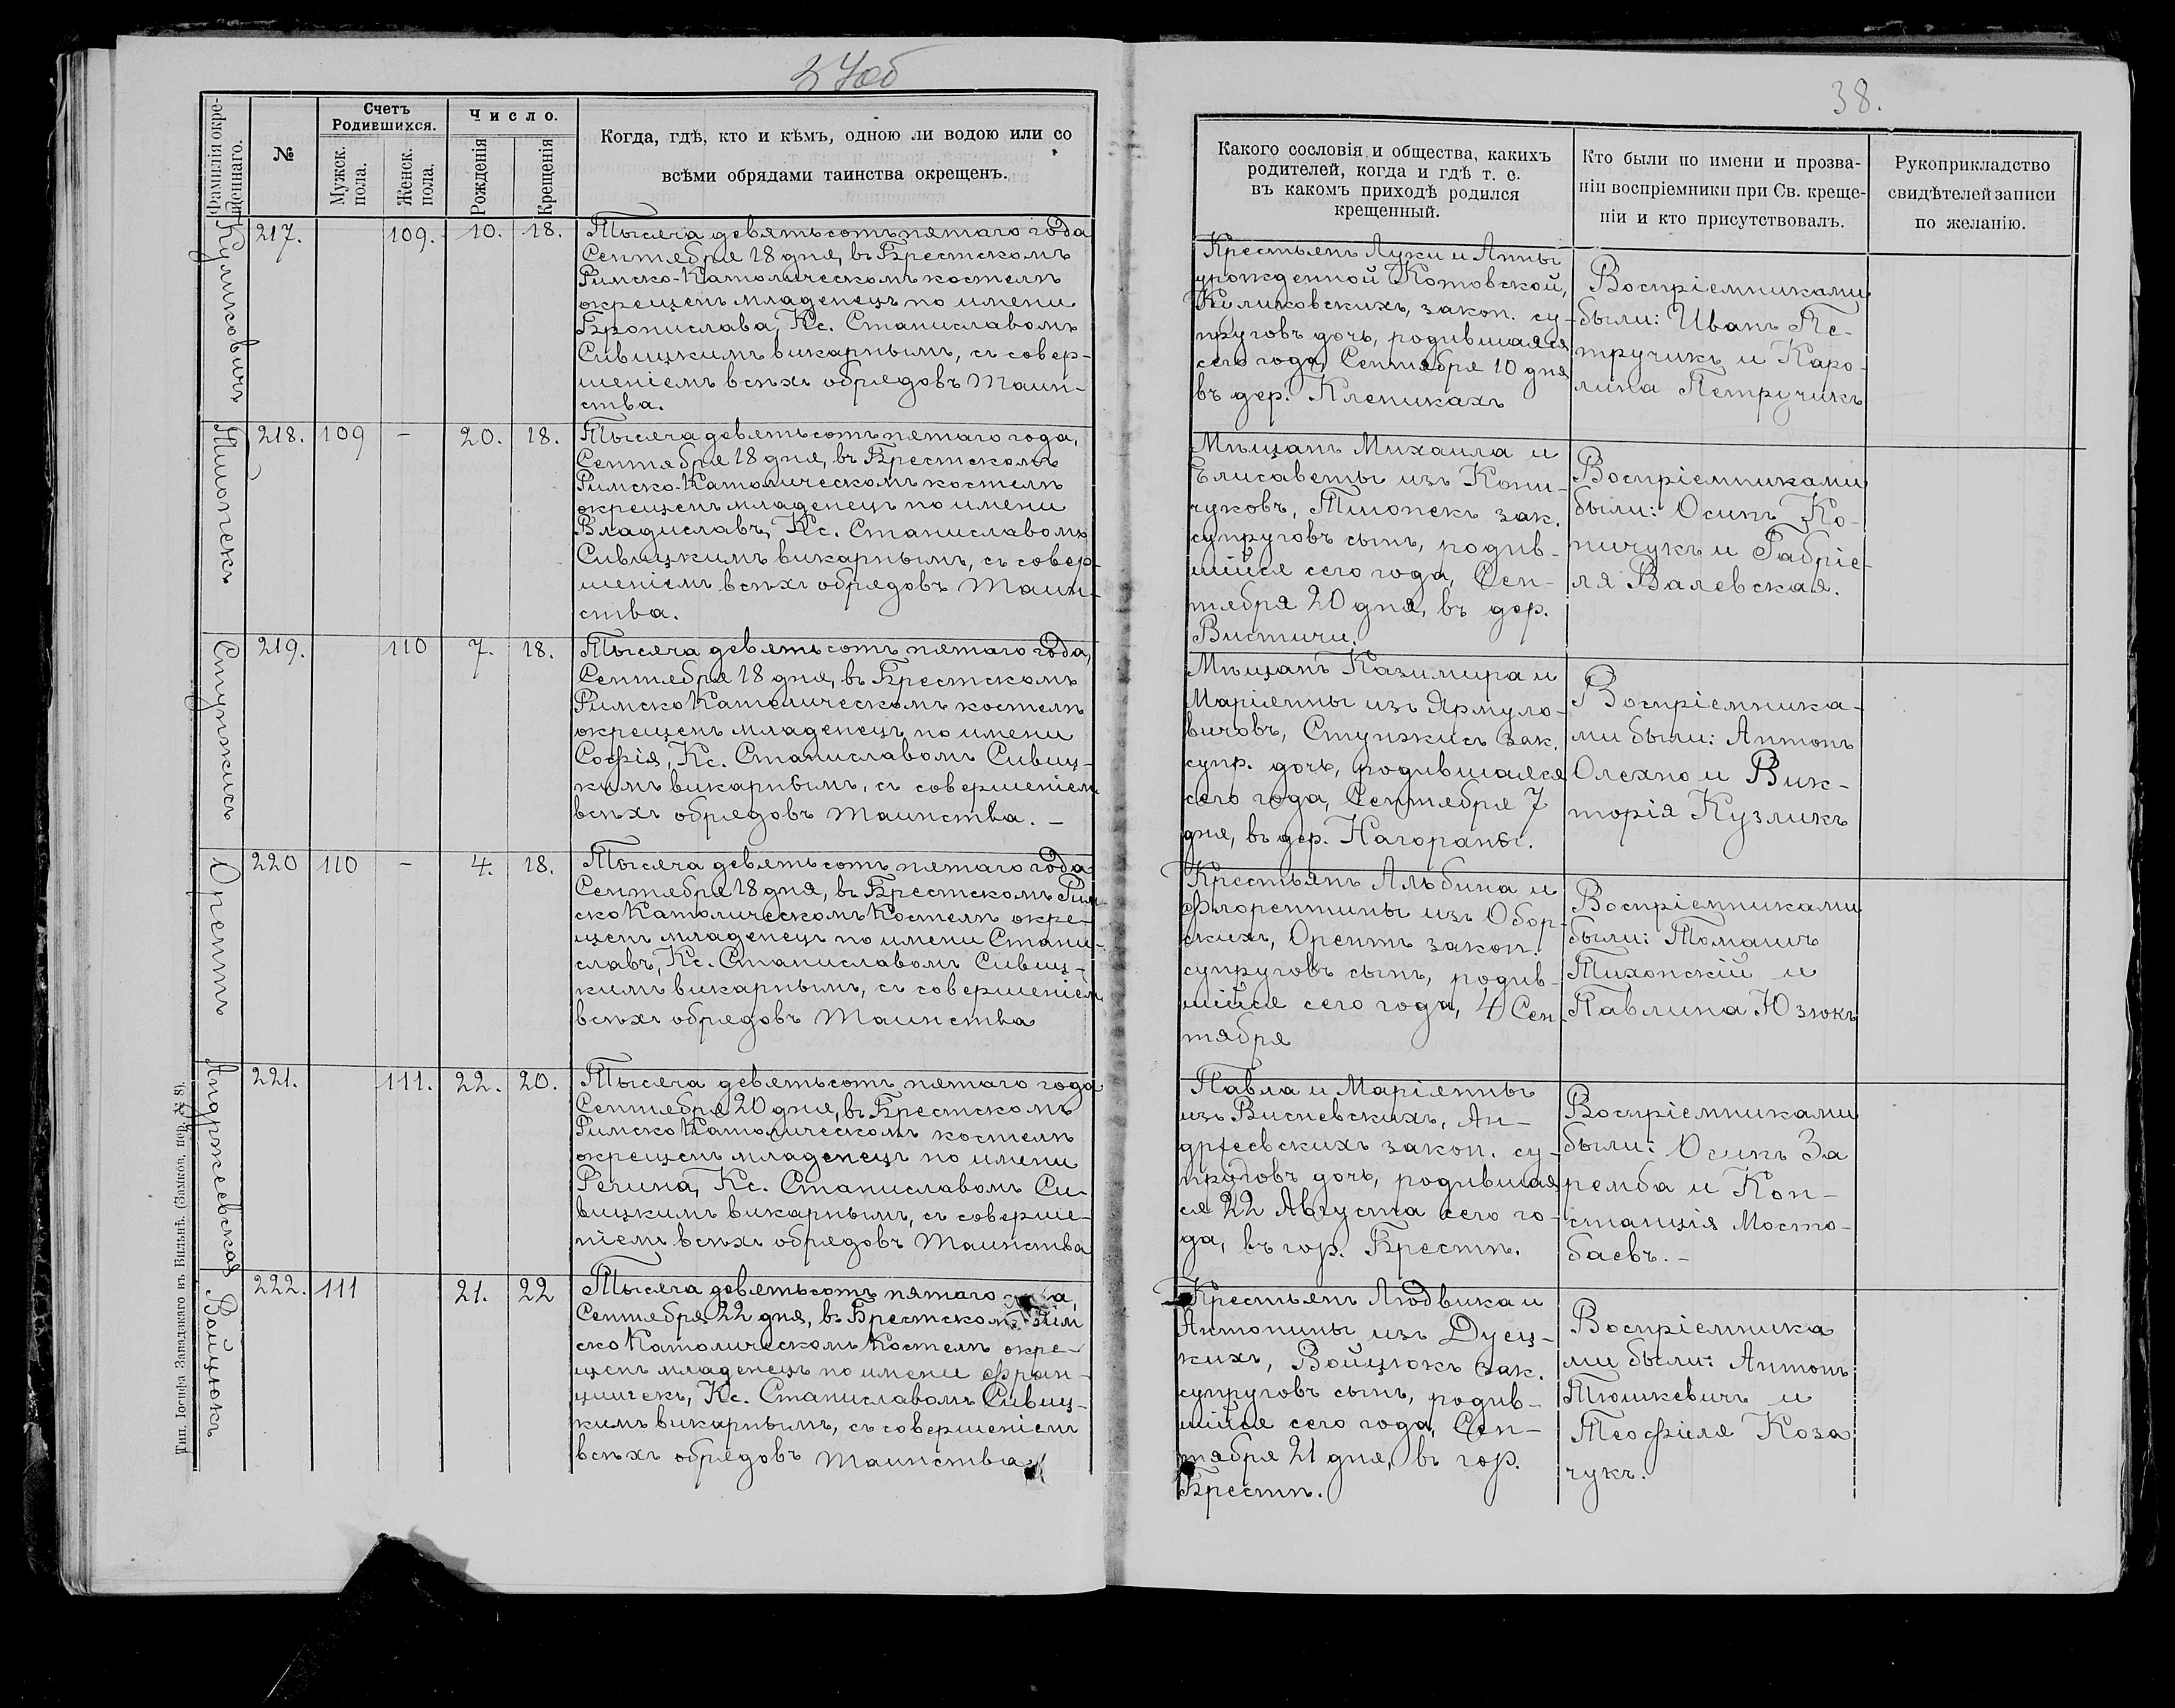 37об
38.
Фамилія окре-
щеннаго.
№
Счетъ
Родившихся.
Мужск.
пола.
Женск.
пола.
Число.
Рожденія
Крещенія
Когда, гдѣ, кто и кѣмъ, одною ли водою или со
всѣми обрядами таинства окрещенъ.
Какого сословія и общества, какихъ
родителей, когда и гдѣ т. е.
въ какомъ приходѣ родился
крещенный.
Кто были по имени и прозва-
ніи воспріемники при Св. креще-
ніи и кто присутствовалъ.
Рукоприкладство
свидѣтелей записи
по желанію.
Куликовичъ
217.
109.
10.
18.
Тысяча девятьсотъ пятаго года
Сентября 18 дня, въ Брестскомъ
Римско-Католическомъ костелѣ
окрещенъ младенецъ по имени
Бронислава, Кс. Станиславомъ
Сивицкимъ викарнымъ, съ совер-
шеніемъ всѣхъ обрядовъ Таин-
ства.
Крестьянъ Луки и Анны
урожденной Котовской,
Куликовскихъ, закон. су-
пруговъ дочь, родившаяся
сего года, Сентября 10 дня
въ дер. Клепикахъ
Воспріемниками
были: Иванъ Пе-
тручикъ и Каро-
лина Петручикъ
218.
109
-
20.
18.
Тысяча девятьсотъ пятаго года,
Сентября 18 дня, въ Брестскомъ
Римско-Католическомъ костелѣ
окрещенъ младенецъ по имени
Владиславъ, Кс. Станиславомъ
Сивицкимъ викарнымъ, съ совер-
шеніемъ всѣхъ обрядовъ Таин-
ства.
Мѣщанъ Михаила и
Елисаветы изъ Кони-
чуковъ, зак.
супруговъ сынъ, родив-
шійся сего года, Сен-
тября 20 дня, въ дер.
Вистичи.
Воспріемниками
были: Осипъ Ко-
ничукъ и Габріе-
ля Валевская.
Ступжисъ
219.
110
7.
18.
Тысяча девятьсотъ пятаго года,
Сентября 18 дня, въ Брестскомъ
Римско Католическомъ костелѣ
окрещенъ младенецъ по имени
Софія, Кс. Станиславомъ Сивиц-
кимъ викарнымъ, съ совершеніем
всѣхъ обрядовъ Таинства. -
Мѣщанъ Казимира и
Маріянны изъ Ярмуло-
вичовъ, Ступжисъ зак.
супр. дочь, родившаяся
сего года, Сентября 7
дня, въ дер. Нагораны.
Воспріемника-
ми были: Антонъ
Олехно и Вик-
торія Кузликъ
Орентъ
220
110
-
4.
18.
Тысяча девятьсотъ пятаго года
Сентября 18 дня, въ Брестскомъ Рим
ско Католическомъ Костелѣ окре-
щенъ младенецъ по имени Стани-
славъ, Кс. Станиславомъ Сивиц-
кимъ викарнымъ, съ совершеніем
всѣхъ обрядовъ Таинства
Крестьянъ Альбина и
Флорентины изъ Обор-
скихъ, Орентъ закон.
супруговъ сынъ, родив-
шійся сего года, 4 Сен-
тября
Воспріемниками
были: Томашъ
Тихонскій и
Павлина Юзюкъ
Андржеевская
221.
111.
22.
20.
Тысяча девятьсотъ пятаго года
Сентября 20 дня, въ Брестскомъ
Римско Католическомъ костелѣ
окрещенъ младенецъ по имени
Регина, Кс. Станиславомъ Си-
вицкимъ викарнымъ, съ соверше-
ніемъ всѣхъ обрядовъ Таинства
Павла и Маріянны
изъ Висневскихъ, Ан-
држеевскихъ закон. су-
пруговъ дочь, родившая
ся 22 Августа сего го-
да, въ гор. Брестѣ.
Воспріемниками
были: Осипъ За
ремба и Кон-
станція Масто-
баевъ. -
Войцюкъ
222.
111
21.
22
Тысяча девятьсотъ пятаго года,
Сентября 22 дня, въ Брестском Рим
ско Католическомъ Костелѣ окре-
щенъ младенецъ по имени Фран-
цишекъ, Кс. Станиславомъ Сивиц-
кимъ викарнымъ, съ совершеніемъ
всѣхъ обрядовъ Таинства.
Крестьянъ Людвика и
Антонины изъ Дусец-
кихъ, Войцюкъ зак.
супруговъ сынъ, родив-
шійся сего года, Сен-
тября 21 дня, въ гор.
Брестѣ.
Воспріемника
ми были: Антонъ
Тюшкевичъ и
Теофиля Коза
чукъ.
Тип. Іосифа Завадзкаго въ Вильнѣ. (Замков. пер. № 8).